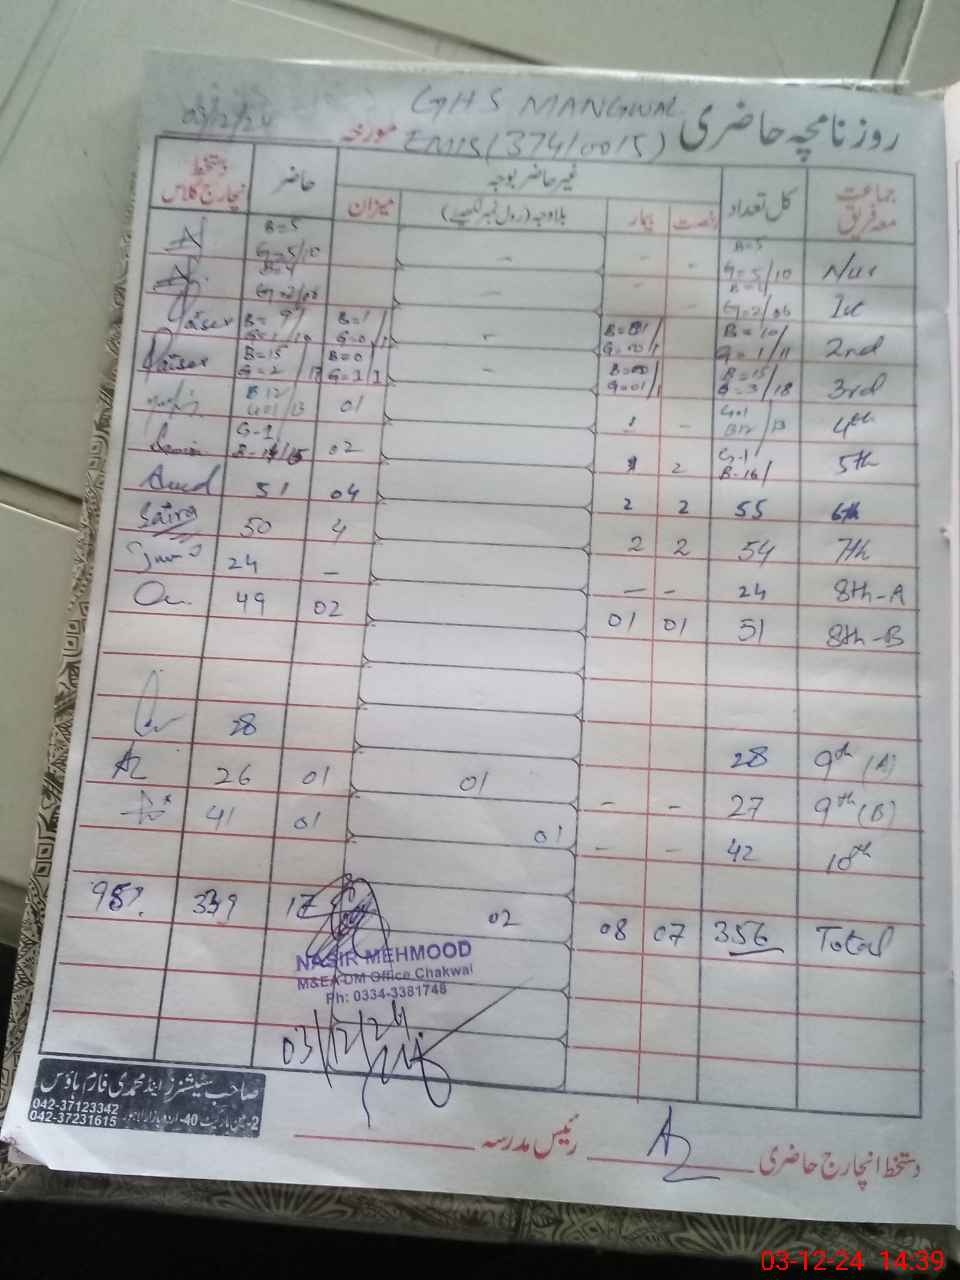 GHS MANGWAL
روزنامچہ حاضری EMIS(37410015) مورخہ 03/12/24
جماعت معہ فریق کل تعداد غیر حاضر بوجہ حاضر دستخط انچارج کلاس
رخصت بیمار بلاوجہ (رول نمبر لکھیے) میزان
Nur B=5 G=5/10 - - - B=5 G=5/10
G=2/06 - - G=2/06
2nd B=10/ G=1/11 - B=1/ G=0/1 Qaiser
3rd B=15 G=3/18 G=01/1 - B=0 G=1/1 B=15 G=2/17 Qaiser
4th G=1 B12/13 - 1 01 B12 G=1/13
5th G-1/ B-16/ 2 02 G-1
6th 55 2 2 04 51
7th 54 2 2 4 50 Saira
8th-A 24 - - - 24
8th-B 51 01 01 02 49
9th (A) 28 28
9th (B) 27 - - 01 01 26
10th 42 - - 01 01 41
Total 356 07 08 02 17 339 95%
NASIR MEHMOOD
M&EA DM Office Chakwal
Ph: 0334-3381748
03/12/24
صاحب سٹیشنرز اینڈ محمدی فارم ہاؤس
042-37123342
042-37231615
40-اردو بازار لاہور
دستخط انچارج حاضری رئیس مدرسہ
03-12-24 14:39